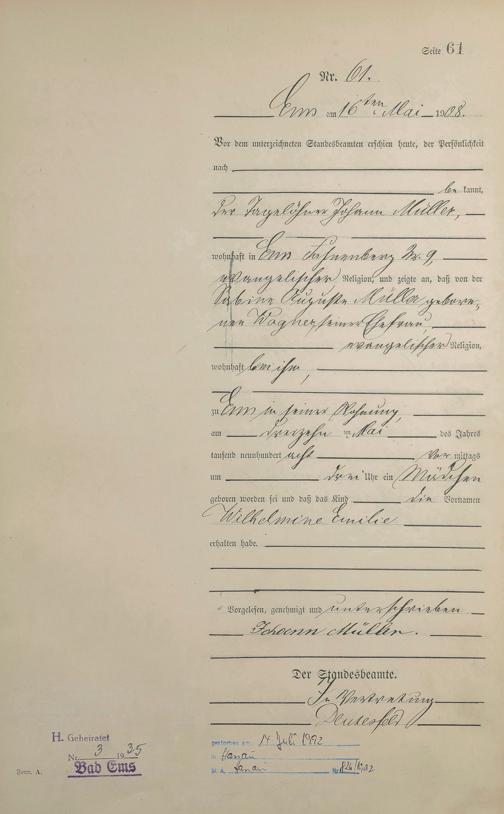 Seite 61
Nr. 61.
Ems am 16ten Mai 1908.
Vor dem unterzeichneten Standesbeamten erschien heute, der Persönlichkeit
nach
be kannt,
der Tagelöhner Johann Müller,
wohnhaft in Ems Nr. 9,
evangelischer Religion, und zeigte an, daß von der
Sabine Auguste Müller gebore-
nen Wagner, seiner Ehefrau,
evangelischer Religion,
wohnhaft bei ihm,
zu Ems in seiner Wohnung,
am dreizehn ten Mai des Jahres
tausend neunhundert acht Vor mittags
um drei Uhr ein Mädchen
geboren worden sei und daß das Kind die Vornamen
Wilhelmine Emilie
erhalten habe.
Vorgelesen, genehmigt und unterschrieben
Johann Müller.
Der Standesbeamte.
In Vertretung
H. Geheiratet
Nr. 3 1935
Bad Ems
Form. A.
gestorben am: 14 Juli 1992
in Hanau
St. A. Hanau Nr.